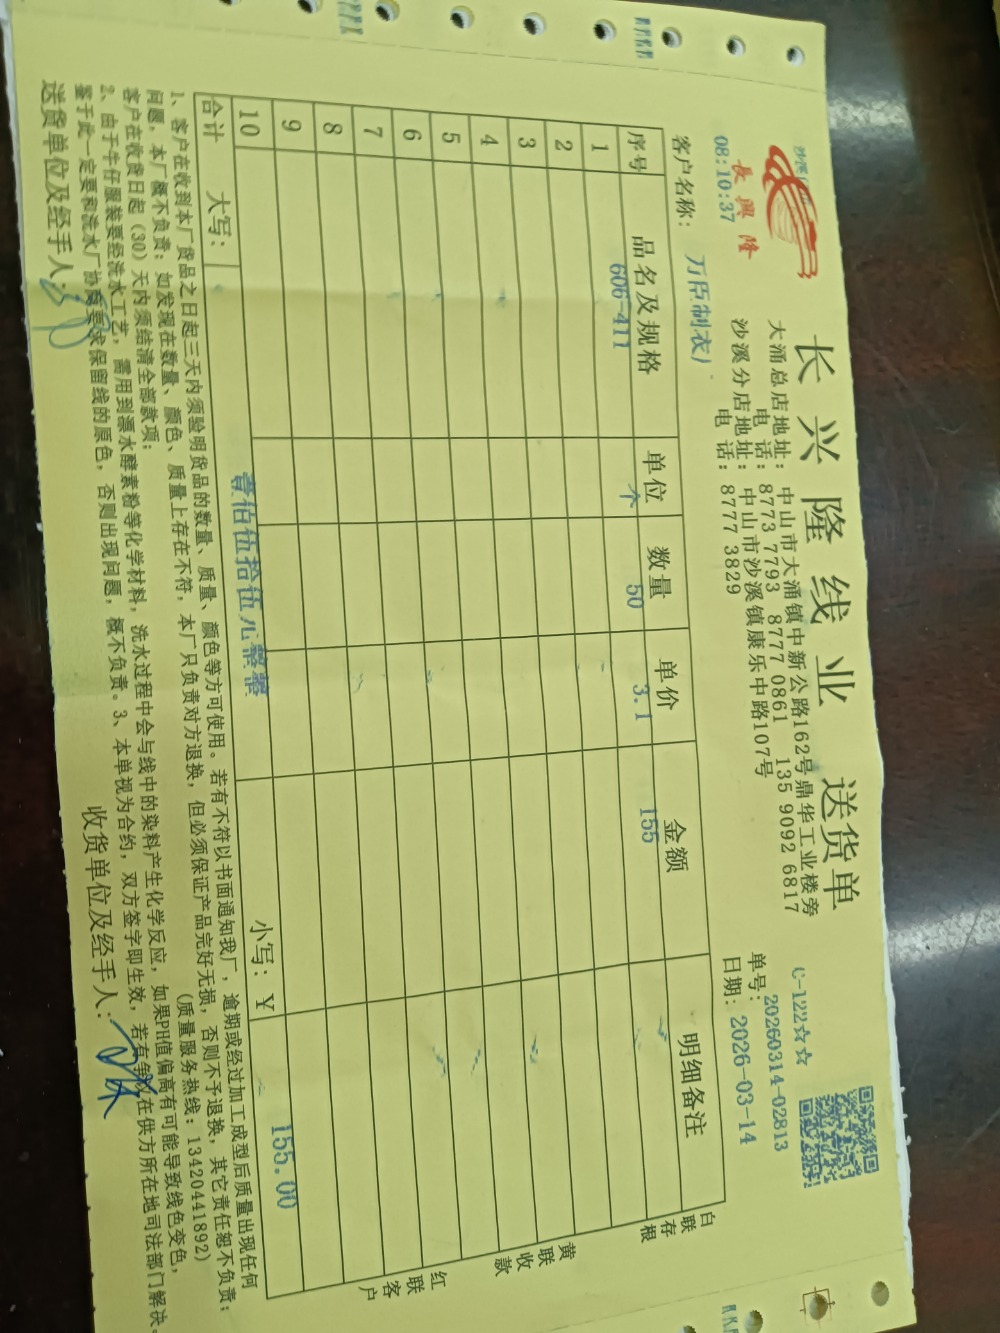 长兴隆线业 送货单
C-122☆☆
沙溪
長興隆
08:10:37
大涌总店地址：中山市大涌镇中新公路162号鼎华工业楼旁
电 话：8773 7793 8777 0861 135 9092 6817
沙溪分店地址：中山市沙溪镇康乐中路107号
电 话：8777 3829
单号：20260314-02813
日期：2026-03-14
客户名称：万臣制衣厂
序号 品名及规格 单位 数量 单价 金额 明细备注
1 606-411 个 50 3.1 155
2
3
4
5
6
7
8
9
10
合计 大写：壹佰伍拾伍元整整 小写：￥ 155.00
白联存根
黄联收款
红联客户
1、客户在收到本厂货品之日起三天内须验明货品的数量、质量、颜色等方可使用。若有不符以书面通知我厂，逾期或经过加工成型后质量出现任何
问题，本厂概不负责；如发现在数量、颜色、质量上存在不符，本厂只负责对方退换，但必须保证产品完好无损，否则不予退换，其它责任恕不负责；
客户在收货日起（30）天内须结清全部款项； （质量服务热线：13420441892）
2、由于牛仔服装要经洗水工艺，需用到源水酵素粉等化学材料，洗水过程中会与线中的染料产生化学反应，如果PH值偏高有可能导致线色变色，
鉴于此一定要和洗水厂协商要求保留线的原色，否则出现问题，概不负责。3、本单视为合约，双方签字即生效，若有争议在供方所在地司法部门解决。
送货单位及经手人： 收货单位及经手人：